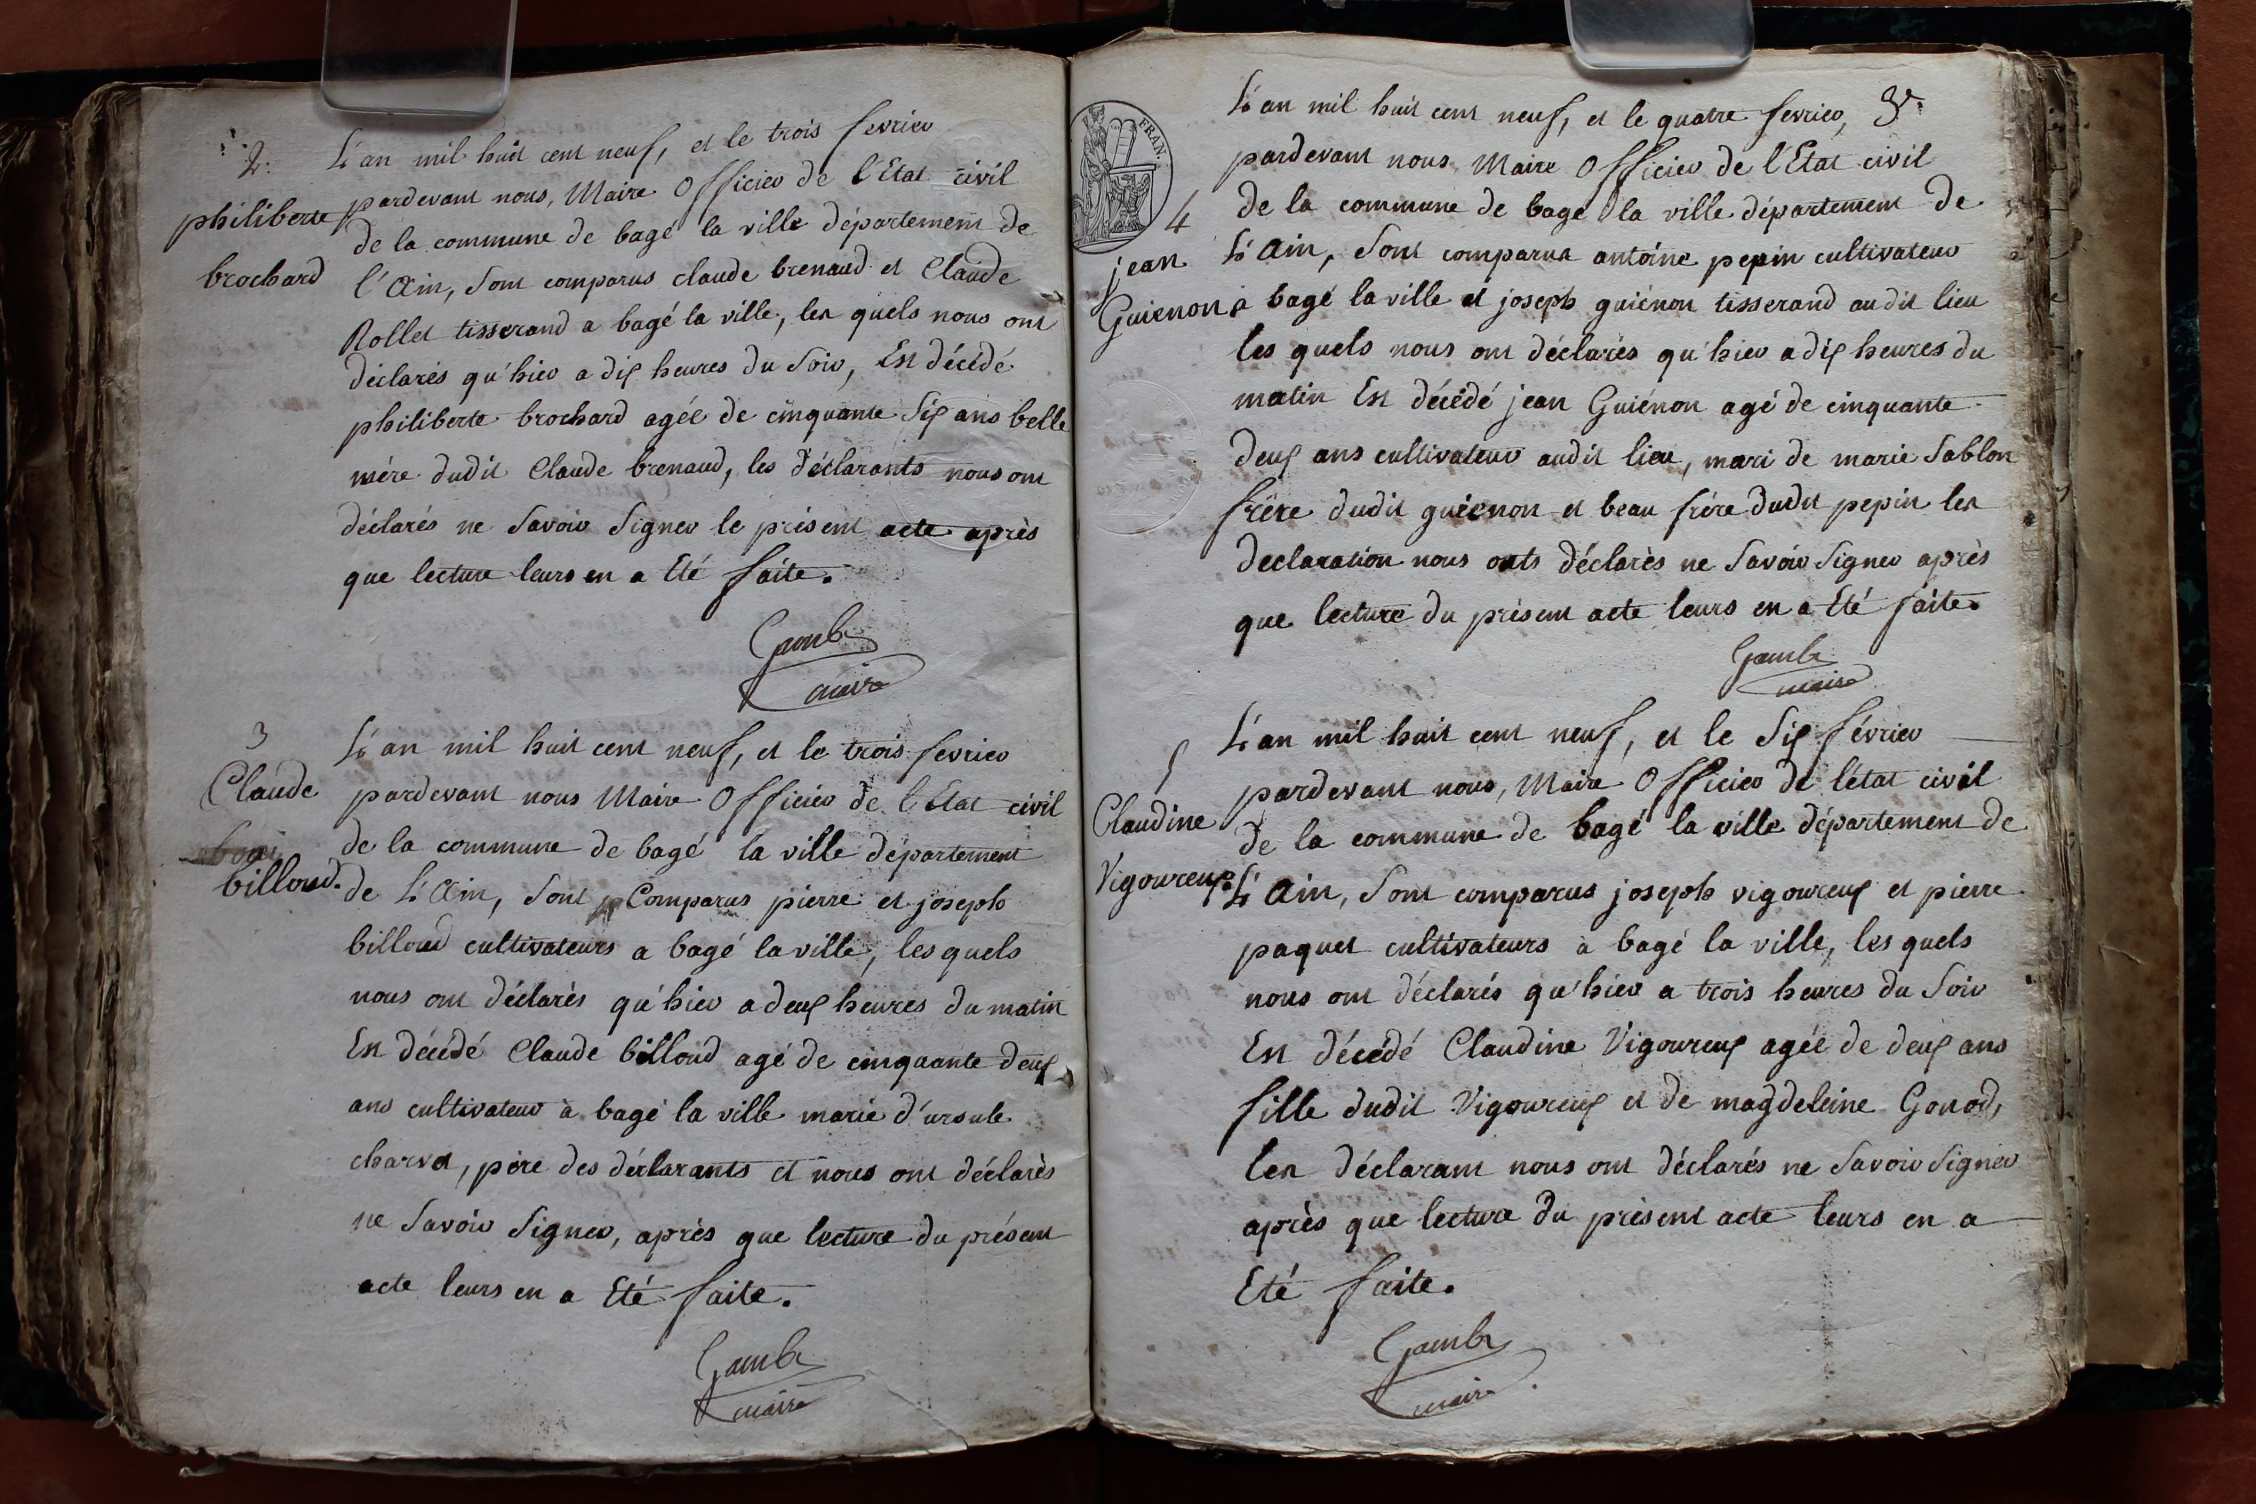 2.
philiberte
brochard
L'an mil huit cent neuf, et le trois fevrier
pardevant nous, Maire Officier de l'Etat civil
de la commune de bagé la ville département de
l'Ain, Sont comparus claude brenaud et Claude
Rollet tisserand a bagé la ville, les quels nous ont
déclarés qu'hier a dix heures du Soir, Est décédé
philiberte brochard agée de cinquante Six ans belle
mére dudit Claude brenaud, les déclarants nous ont
déclarés ne Savoir Signer le présent acte après
que lecture leurs en a Eté faite.
Gamb
maire
3
Claude
billoud.
L'an mil huit cent neuf, et le trois fevrier
pardevant nous Maire Officier de l'Etat civil
de la commune de bagé la ville département
de L'Ain, Sont Comparus pierre et joseph
billoud cultivateurs a bagé la ville, les quels
nous ont déclarés qu'hier a deux heures du matin
Est décédé Claude billoud agé de cinquante deux
ans cultivateur à bagé la ville marie d'ursule
charvet, père des déclarants et nous ont déclarès
ne Savoir Signer, après que lecture du présent
acte leurs en a Eté faite.
Gamb
maire
FRAN.
3e.
4
jean
Guienon
L'an mil huit cent neuf, et le quatre fevrier,
pardevant nous Maire Officier de l'Etat civil
de la commune de bagé la ville département de
L'Ain, Sont comparus antoine pepin cultivateur
a bagé la ville et joseph guiénon tisserand audit lieu
les quels nous ont déclarés qu'hier a dix heures du
matin Est décédé jean Guiénon agé de cinquante
deux ans cultivateur audit lieu, mari de marie Sablon
frère dudit guienon et beau frére dudit pepin les
declaration nous onts déclarès ne Savoir Signer après
que lecture du présent acte leurs en a Eté faite.
Gamb
maire
5
Claudine
Vigoureux
L'an mil huit cent neuf, et le Six février
pardevant nous, Maire Officier de l'état civil
de la commune de bagé la ville département de
L'Ain, Sont comparus joseph vigoureux et pierre
paquet cultivateurs à bagé la ville, les quels
nous ont déclarés qu'hier a trois heures du Soir
Est décédé Claudine Vigoureux agée de deux ans
fille dudit Vigoureux et de magdeleine Gonod,
les déclarant nous ont déclarés ne Savoir Signer
après que lecture du présent acte leurs en a
Eté faite.
Gamb
maire